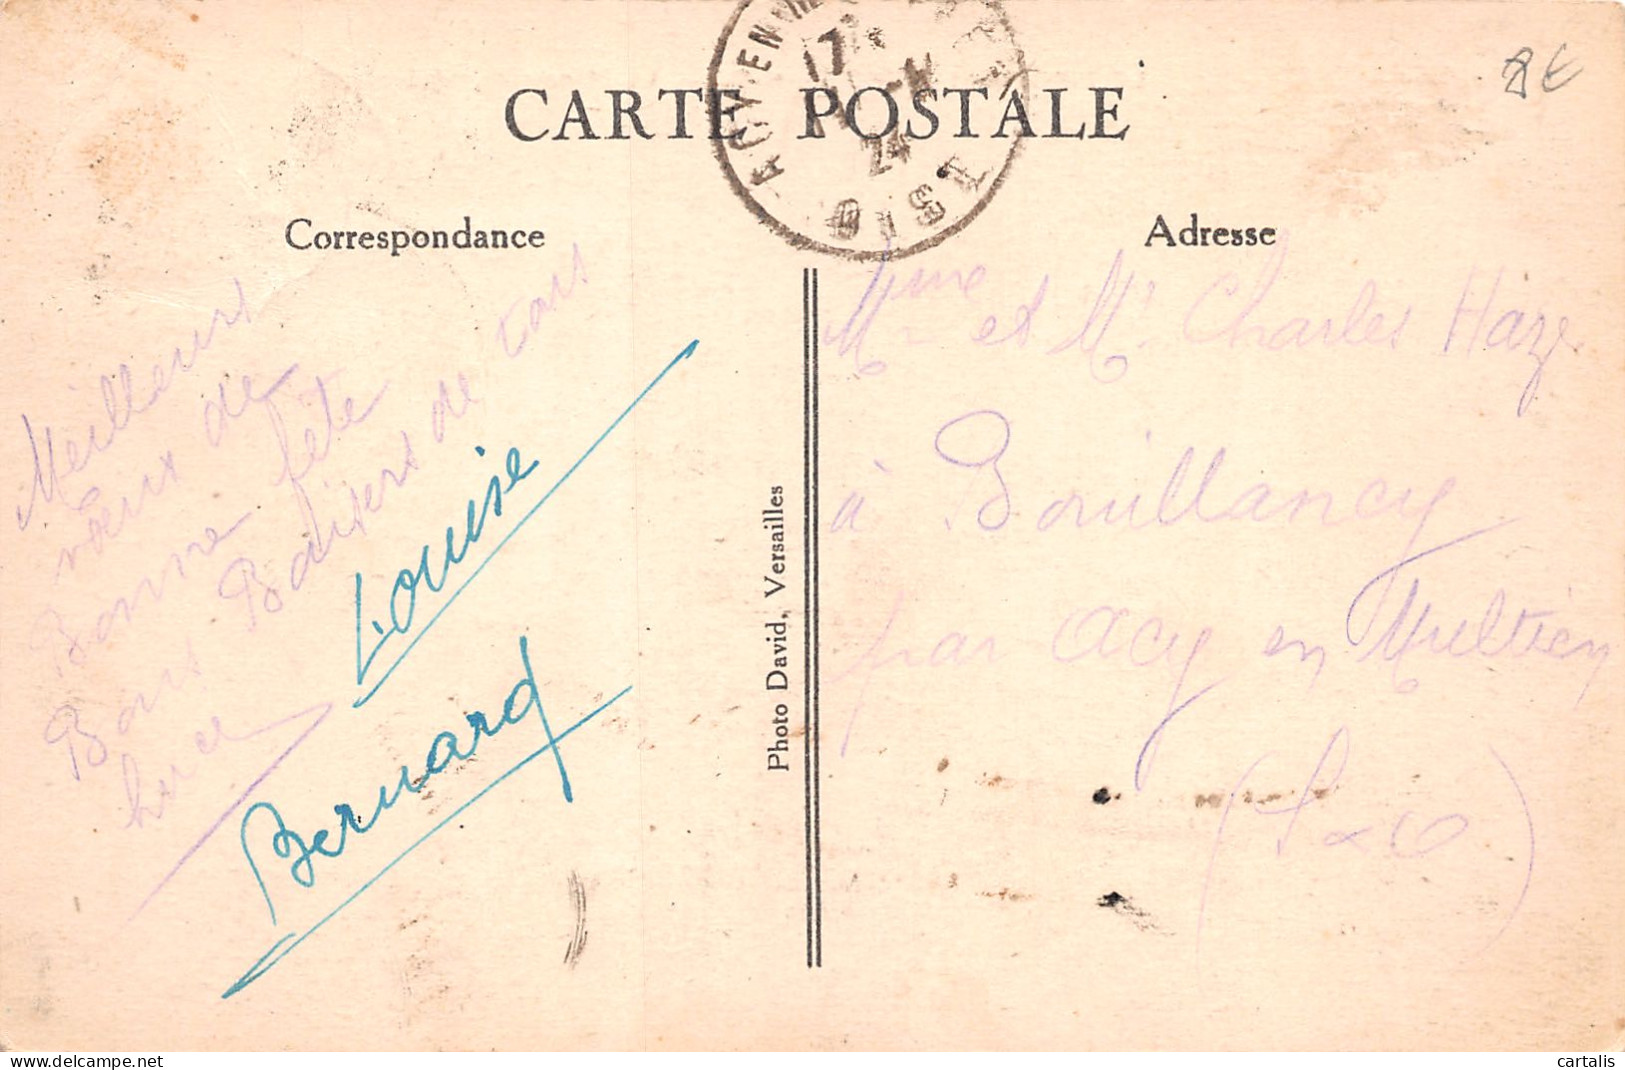 CARTE POSTALE
ACY-EN
17
24
OISE
8€
Correspondance
Adresse
Meilleurs
vœux de
Bonne fête
Bons Baisers de tous
Luce
Louise
Bernard
Photo David, Versailles
Mme et Mr Charles Haze
à Bouillancy
par Acy en Multien
cartalis